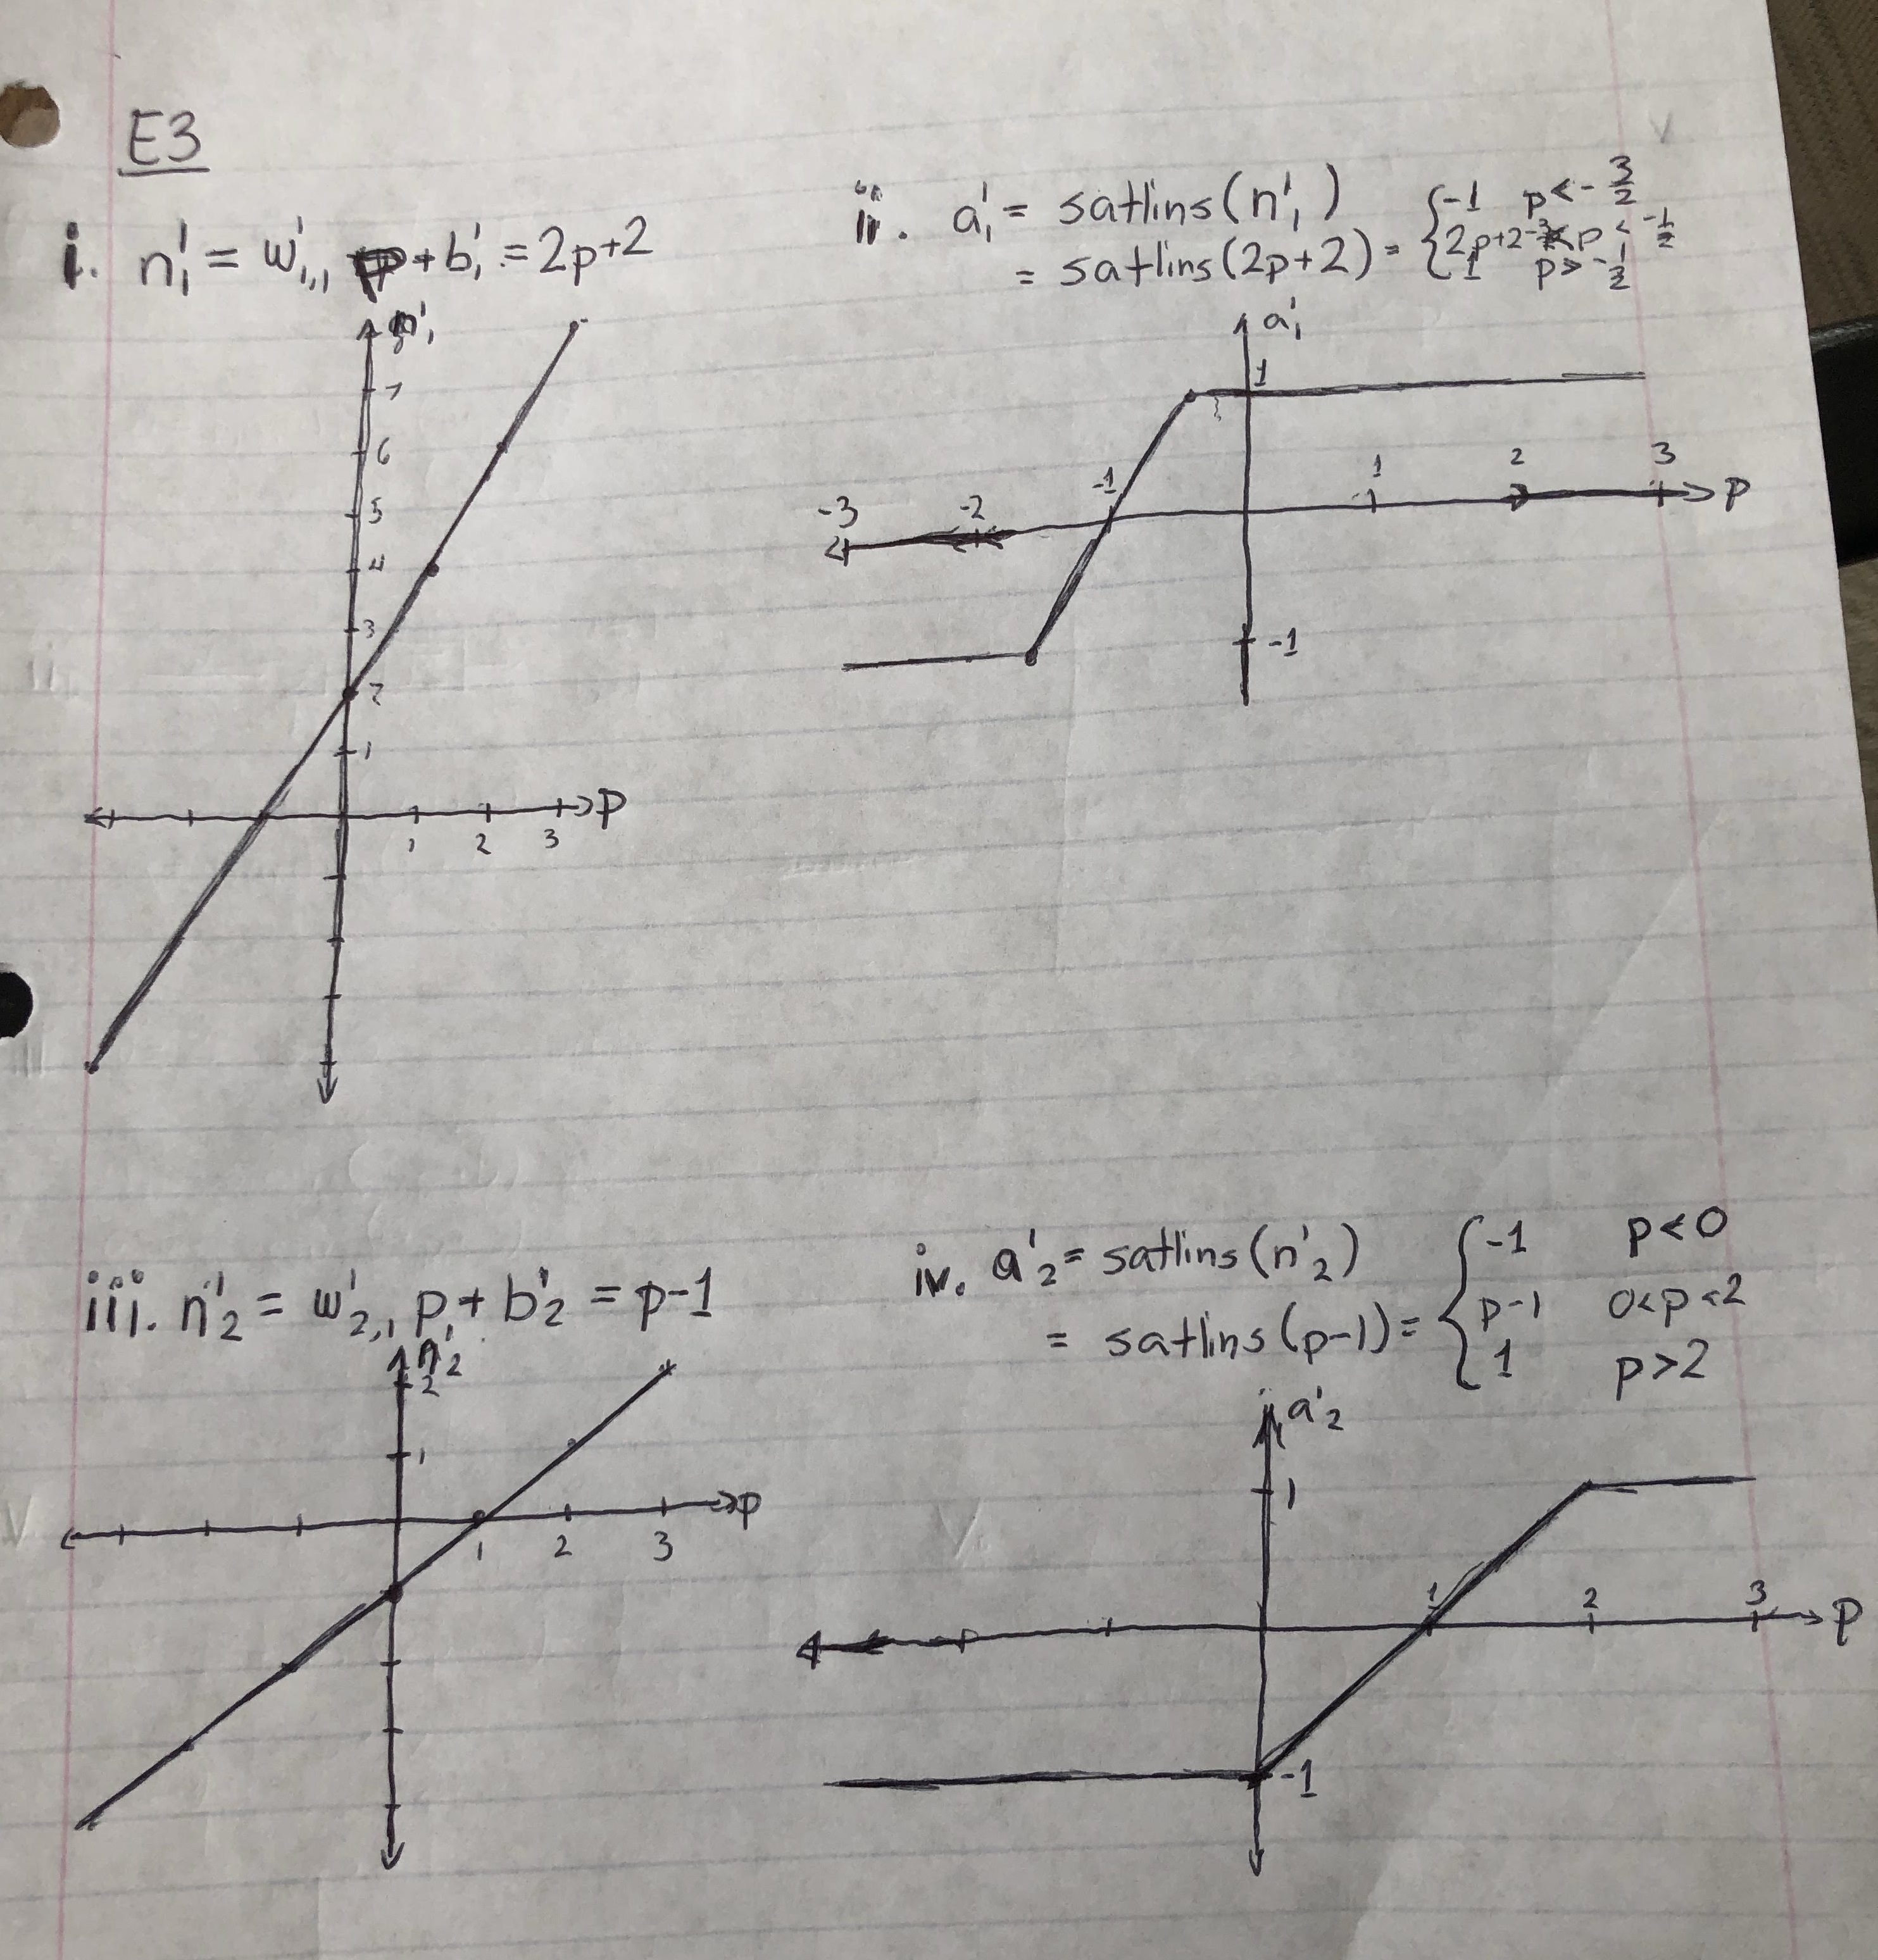 E3
i. n₁¹ = w¹₁,₁ p + b₁¹ = 2p+2
n₁¹
8
7
6
5
4
3
2
1
1 2 3 p
ii. a₁¹ = satlins(n₁¹)
= satlins(2p+2) = { -1 p < -3/2
2p+2 -3/2 < p < -1/2
1 p > -1/2
a₁¹
1
-3 -2 -1 1 2 3 p
-1
iii. n₂¹ = w¹₂,₁ p + b₂¹ = p-1
n₂¹
2
1
1 2 3 p
iv. a₂¹ = satlins(n₂¹)
= satlins(p-1) = { -1 p < 0
p-1 0<p<2
1 p > 2
a₂¹
1
1 2 3 p
-1